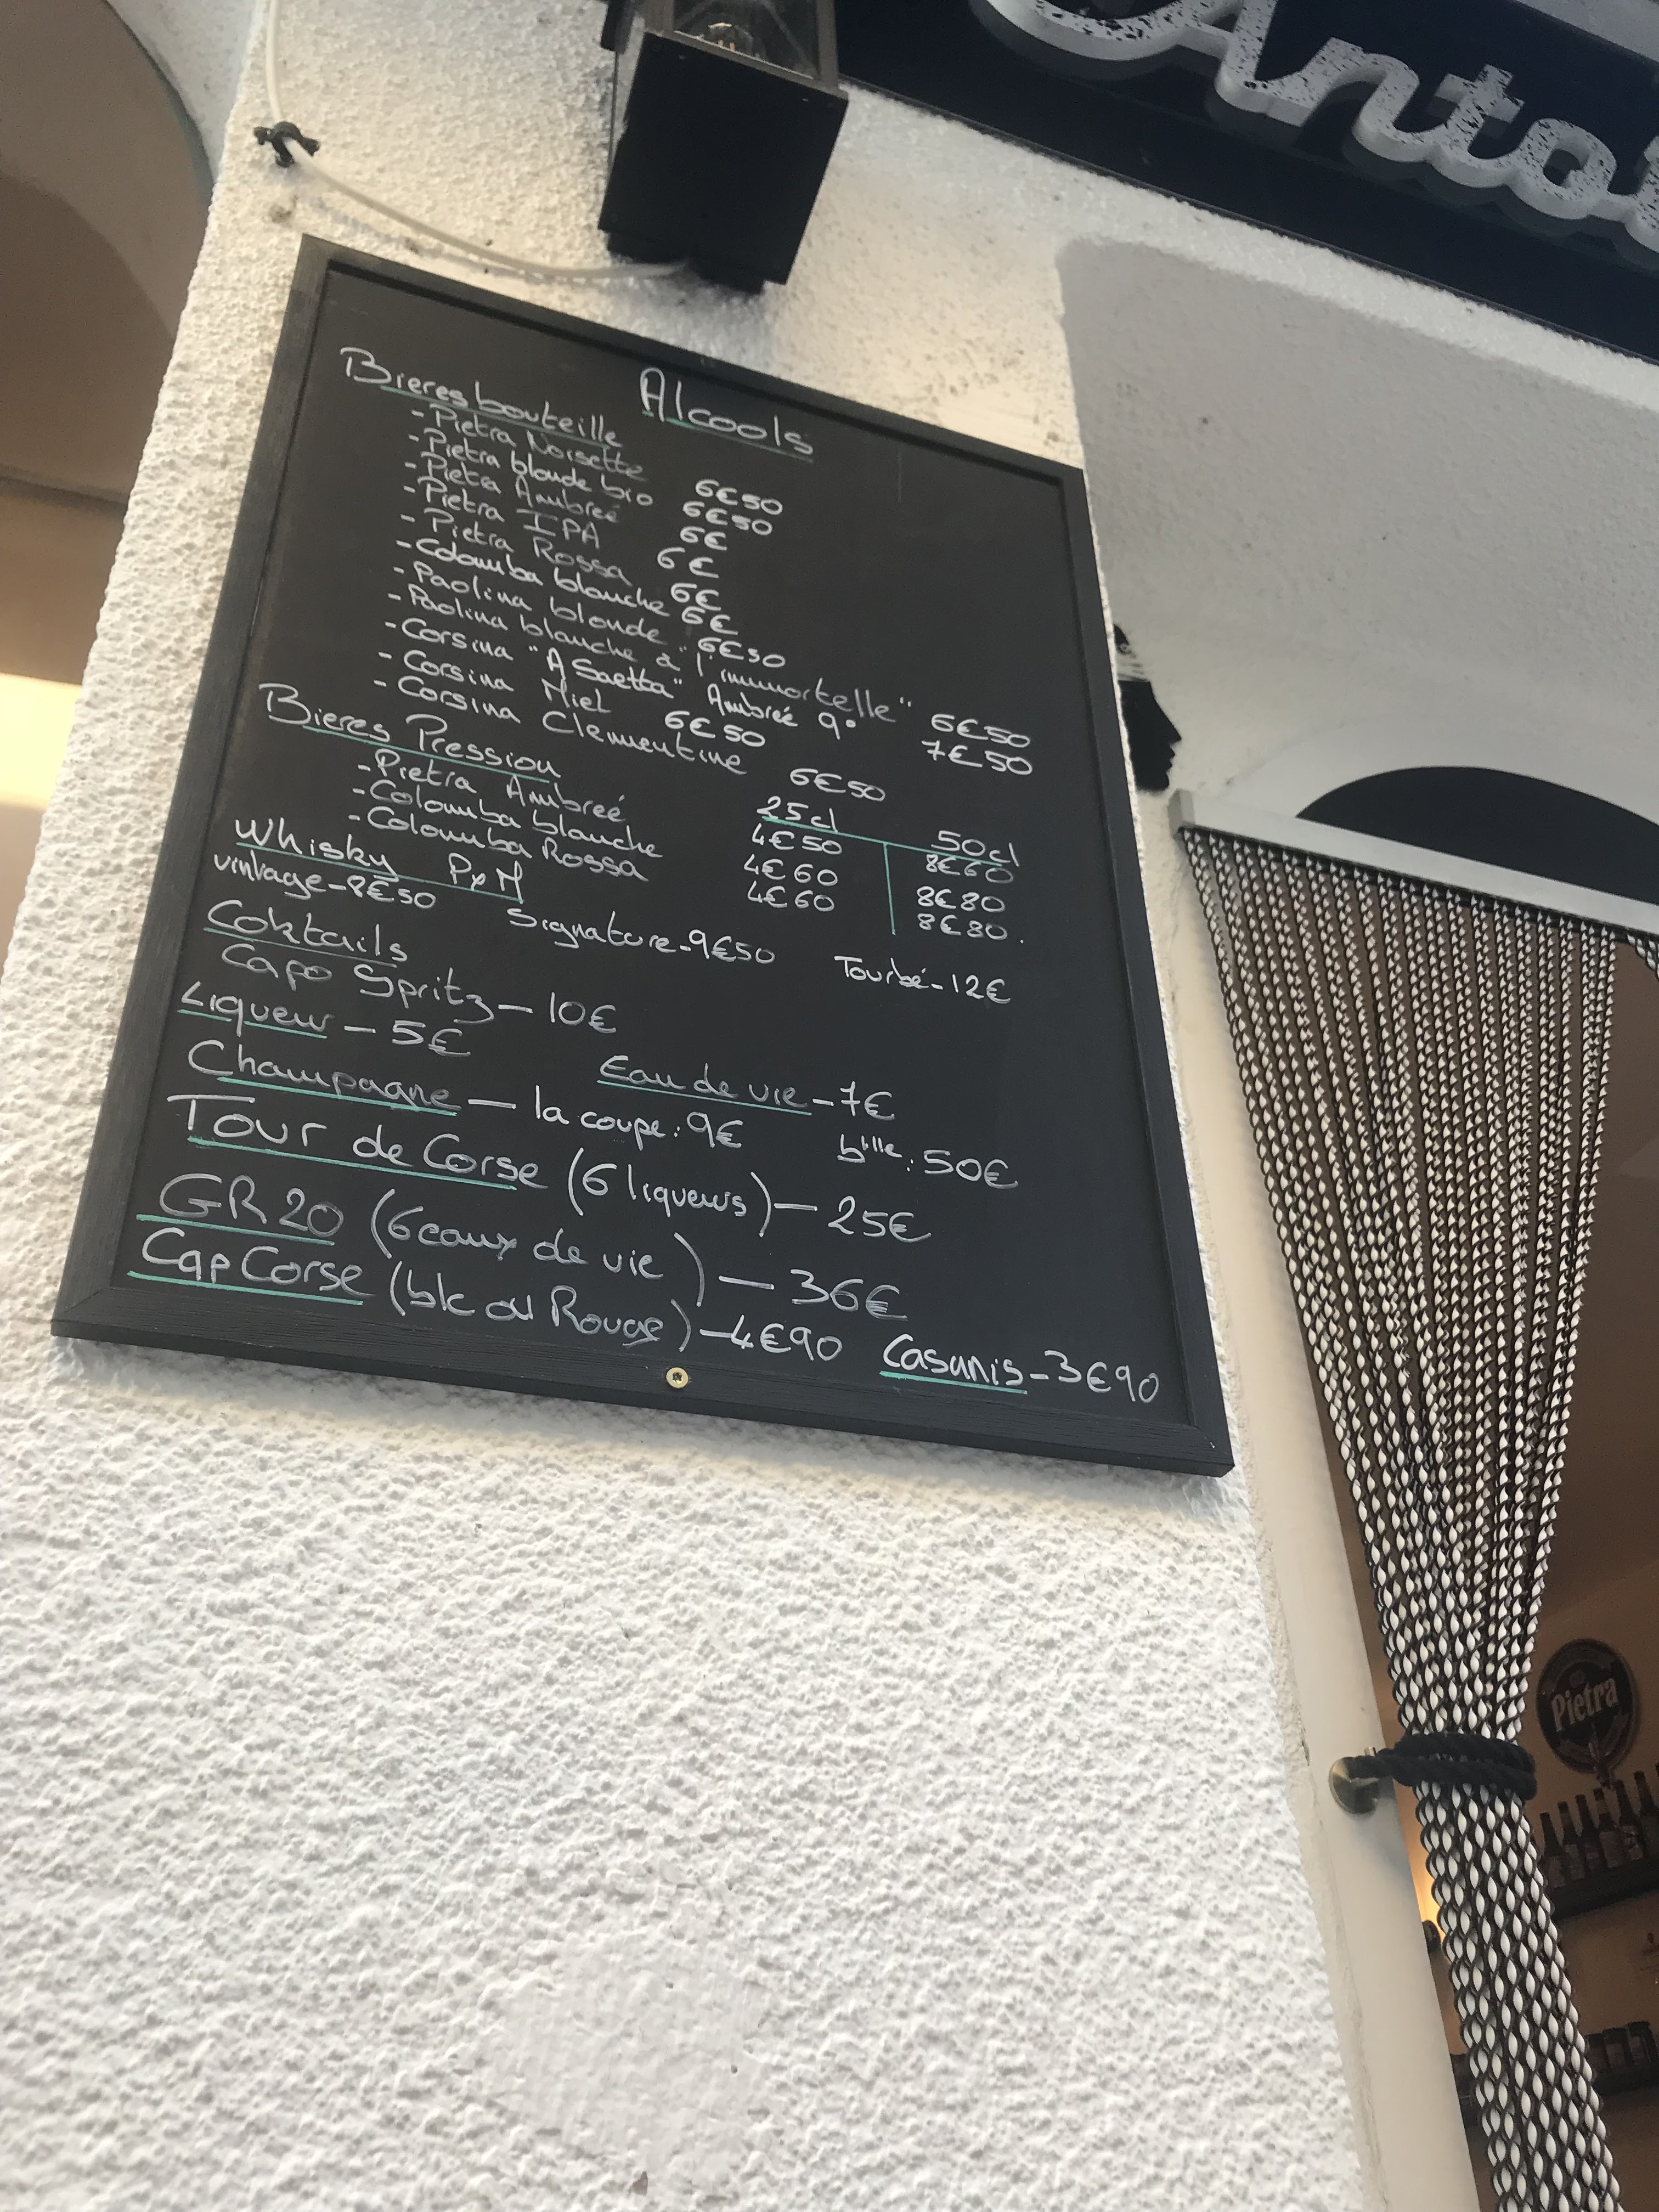 Anto
Alcools
Bieres bouteille
- Pietra Noisette 6€50
- Pietra blonde bio 6€50
- Pietra Ambreé 6€
- Pietra IPA 6€
- Pietra Rossa 6€
- Colomba blanche 6€
- Paolina blonde 6€50
- Paolina blanche à "l'immortelle" 6€50
- Corsina "A Saetta" Ambreé 9° 7€50
- Corsina Miel 6€50
- Corsina Clementine 6€50
Bieres Pression 25cl 50cl
- Pietra Ambreé 4€50 8€60
- Colomba blanche 4€60 8€80
- Colomba Rossa 4€60 8€80.
Whisky PxM
vintage - 8€50 Signature - 9€50 Tourbé - 12€
Coktails
Capo Spritz — 10€
Liqueur — 5€ Eau de vie - 7€
Champagne — la coupe : 9€ blle : 50€
Tour de Corse (6 liqueurs) — 25€
GR 20 (6 eaux de vie) — 36€
Cap Corse (blc ou Rouge) — 4€90 Casanis - 3€90
Pietra